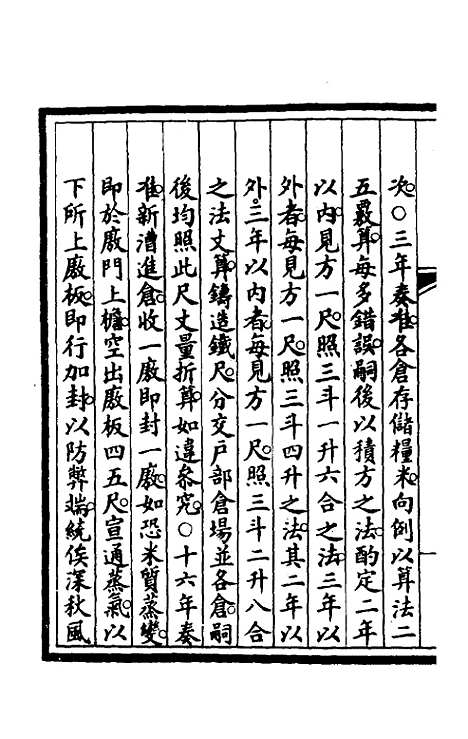 次。○三年奏准。各倉存儲糧米。向例以算法二
五覈算。每多錯誤。嗣後以積方之法。酌定二年
以內。見方一尺。照三斗一升六合之法。三年以
外者。每見方一尺。照三斗四升之法。其二年以
外。三年以內者。每見方一尺。照三斗二升八合
之法丈算。鑄造鐵尺。分交戶部倉場並各倉。嗣
後均照此尺丈量折算。如違參究。○十六年奏
准。新漕進倉。收一廒即封一廒。如恐米質蒸變。
即於廒門上檐。空出廒板四五尺。宣通蒸氣。以
下所上廒板。即行加封。以防弊端。統俟深秋風